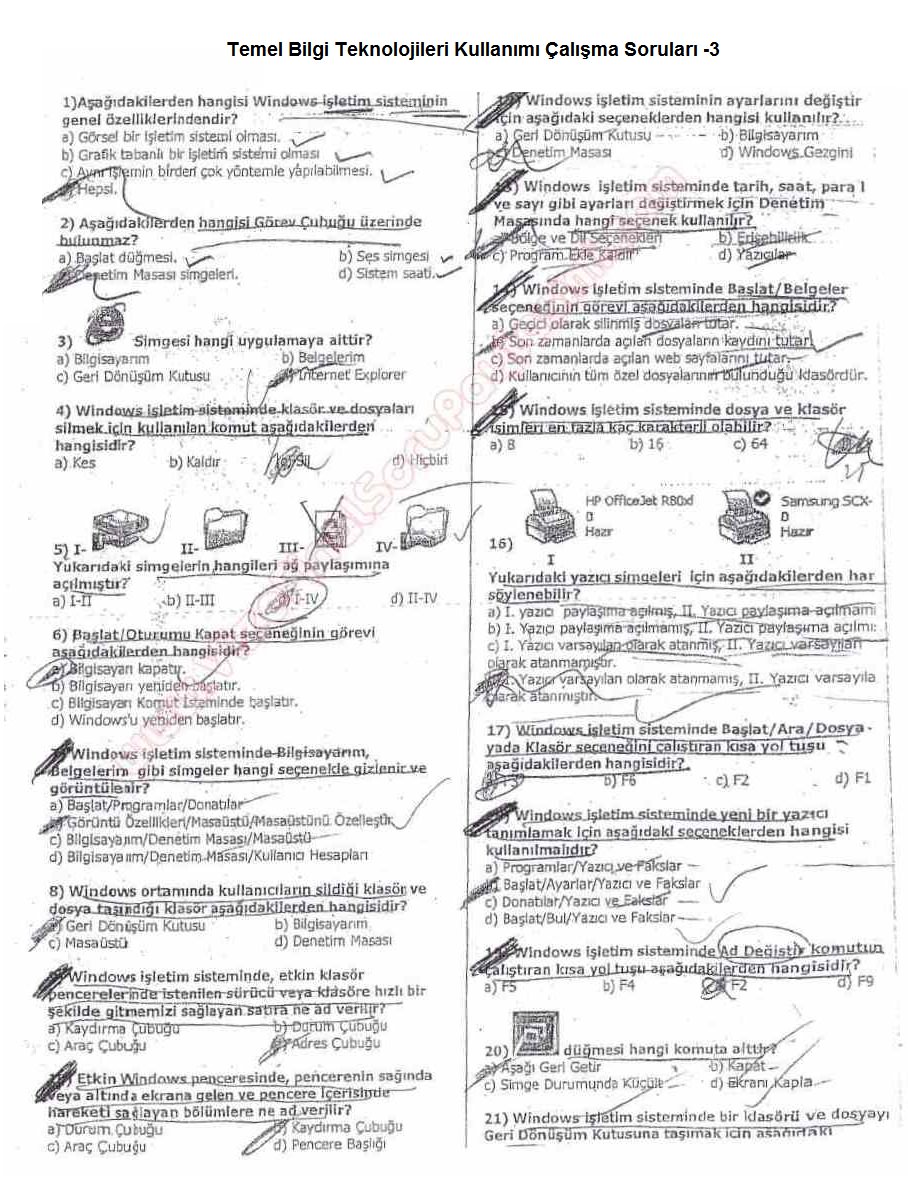 Temel Bilgi Teknolojileri Kullanımı Çalışma Soruları -3
1)Aşağıdakilerden hangisi Windows işletim sisteminin
genel özelliklerindendir?
a) Görsel bir işletim sistemi olması.
b) Grafik tabanlı bir işletim sistemi olması
c) Aynı işlemin birden çok yöntemle yapılabilmesi.
Hepsi.
2) Aşağıdakilerden hangisi Görev Çubuğu üzerinde
bulunmaz?
a) Başlat düğmesi.
b) Ses simgesi
Denetim Masası simgeleri.
d) Sistem saati.
3) Simgesi hangi uygulamaya aittir?
a) Bilgisayarım
b) Belgelerim
c) Geri Dönüşüm Kutusu
Internet Explorer
4) Windows işletim sisteminde klasör ve dosyaları
silmek için kullanılan komut aşağıdakilerden
hangisidir?
a) Kes
b) Kaldır
c) Sil
d) Hiçbiri
5) I- II- III- IV-
Yukarıdaki simgelerin hangileri ağ paylaşımına
açılmıştır?
a) I-II
b) II-III
I-IV
d) II-IV
6) Başlat/Oturumu Kapat seçeneğinin görevi
aşağıdakilerden hangisidir?
a) Bilgisayarı kapatır.
b) Bilgisayarı yeniden başlatır.
c) Bilgisayarı Komut İsteminde başlatır.
d) Windows'u yeniden başlatır.
Windows işletim sisteminde Bilgisayarım,
Belgelerim gibi simgeler hangi seçenekle gizlenir ve
görüntülenir?
a) Başlat/Programlar/Donatılar
Görüntü Özellikleri/Masaüstü/Masaüstünü Özelleştir.
c) Bilgisayarım/Denetim Masası/Masaüstü
d) Bilgisayarım/Denetim Masası/Kullanıcı Hesapları
8) Windows ortamında kullanıcıların sildiği klasör ve
dosya taşındığı klasör aşağıdakilerden hangisidir?
a) Geri Dönüşüm Kutusu
b) Bilgisayarım
c) Masaüstü
d) Denetim Masası
Windows işletim sisteminde, etkin klasör
pencerelerinde istenilen sürücü veya klasöre hızlı bir
şekilde gitmemizi sağlayan satıra ne ad verilir?
a) Kaydırma Çubuğu
b) Durum Çubuğu
c) Araç Çubuğu
Adres Çubuğu
Etkin Windows penceresinde, pencerenin sağında
veya altında ekrana gelen ve pencere içerisinde
hareketi sağlayan bölümlere ne ad verilir?
a) Durum Çubuğu
Kaydırma Çubuğu
c) Araç Çubuğu
d) Pencere Başlığı
Windows işletim sisteminin ayarlarını değiştir
için aşağıdaki seçeneklerden hangisi kullanılır?
a) Geri Dönüşüm Kutusu
b) Bilgisayarım
Denetim Masası
d) Windows Gezgini
Windows işletim sisteminde tarih, saat, para
ve sayı gibi ayarları değiştirmek için Denetim
Masasında hangi seçenek kullanılır?
Bölge ve Dil Seçenekleri
b) Erişebilirlik
c) Program Ekle Kaldır
d) Yazıcılar
Windows işletim sisteminde Başlat/Belgeler
seçeneğinin görevi aşağıdakilerden hangisidir?
a) Geçici olarak silinmiş dosyaları tutar.
Son zamanlarda açılan dosyaların kaydını tutar
c) Son zamanlarda açılan web sayfalarını tutar.
d) Kullanıcının tüm özel dosyalarının bulunduğu klasördür.
Windows işletim sisteminde dosya ve klasör
isimleri en fazla kaç karakterli olabilir?
a) 8
b) 16
c) 64
HP OfficeJet R80xd
Hazır
Samsung SCX-
Hazır
16)
I
II
Yukarıdaki yazıcı simgeleri için aşağıdakilerden har
söylenebilir?
a) I. yazıcı paylaşıma açılmış, II. Yazıcı paylaşıma açılmamı
b) I. Yazıcı paylaşıma açılmamış, II. Yazıcı paylaşıma açılmı:
c) I. Yazıcı varsayılan olarak atanmış, II. Yazıcı varsayılan
olarak atanmamıştır.
I. Yazıcı varsayılan olarak atanmamış, II. Yazıcı varsayıla
olarak atanmıştır.
17) Windows işletim sisteminde Başlat/Ara/Dosya
yada Klasör seçeneğini çalıştıran kısa yol tuşu
aşağıdakilerden hangisidir?
b) F6
c) F2
d) F1
Windows işletim sisteminde yeni bir yazıcı
tanımlamak için aşağıdaki seçeneklerden hangisi
kullanılmalıdır?
a) Programlar/Yazıcı ve Fakslar
Başlat/Ayarlar/Yazıcı ve Fakslar
c) Donatılar/Yazıcı ve Fakslar
d) Başlat/Bul/Yazıcı ve Fakslar
Windows işletim sisteminde Ad Değiştir komutun
çalıştıran kısa yol tuşu aşağıdakilerden hangisidir?
a) F5
b) F4
F2
d) F9
20) düğmesi hangi komuta aittir?
a) Aşağı Geri Getir
b) Kapat
c) Simge Durumunda Küçült
d) Ekranı Kapla
21) Windows işletim sisteminde bir klasörü ve dosyayı
Geri Dönüşüm Kutusuna taşımak için aşağıdaki